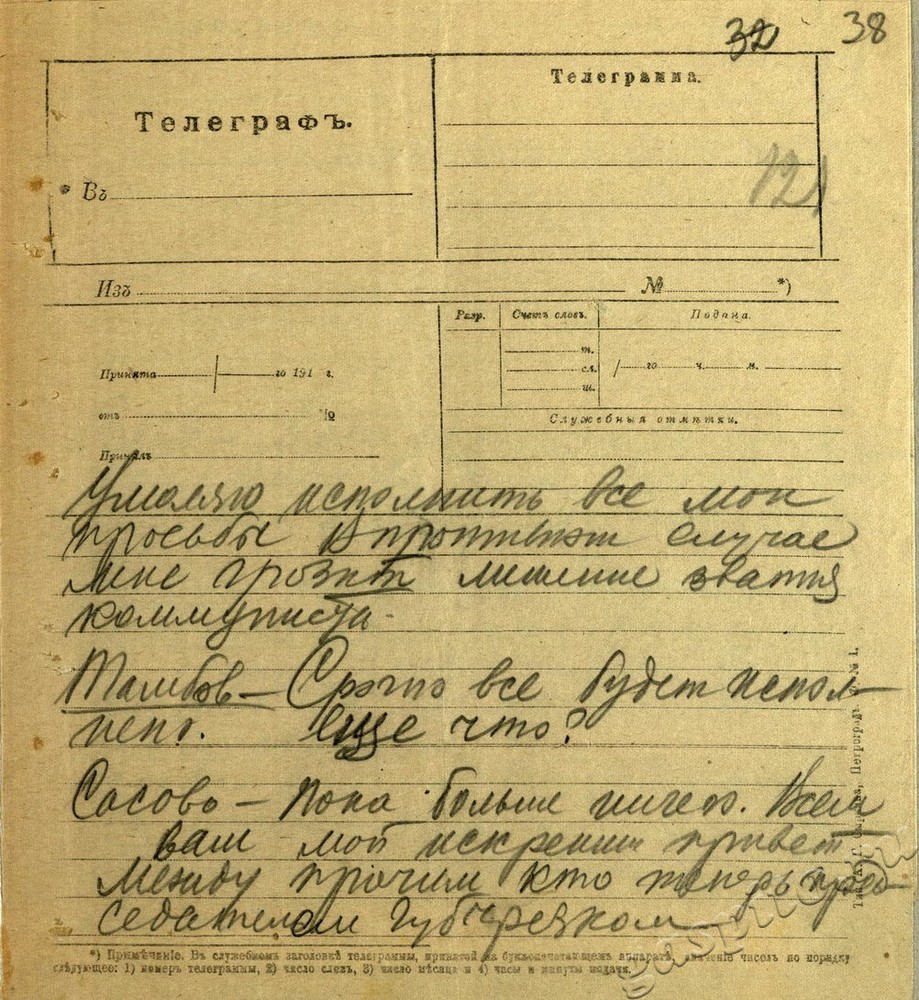 32 38
Телеграфъ.
Телеграмма.
Въ
121
Изъ № *)
Разр. Счетъ словъ. Подана.
т.
сл.
ш.
го ч. м.
Принята го 191 г.
отъ №
Служебныя отмѣтки.
Принялъ
Умоляю исполнить все мои
просьбы в противном случае
мне грозит лишение звания
коммуниста.
Тамбов — Срочно все будет испол-
нено. Еще что?
Сасово — Пока больше ничего. Всем
вам мой искренний привет
Между прочим кто теперь пред-
седателем Губчрезком
*) Примѣчаніе. Въ служебномъ заголовкѣ телеграммы, принятой на буквопечатающемъ аппаратѣ, значеніе чиселъ по порядку
слѣдующее: 1) номеръ телеграммы, 2) число словъ, 3) число мѣсяца и 4) часы и минуты подачи.
Петроградъ № 1.